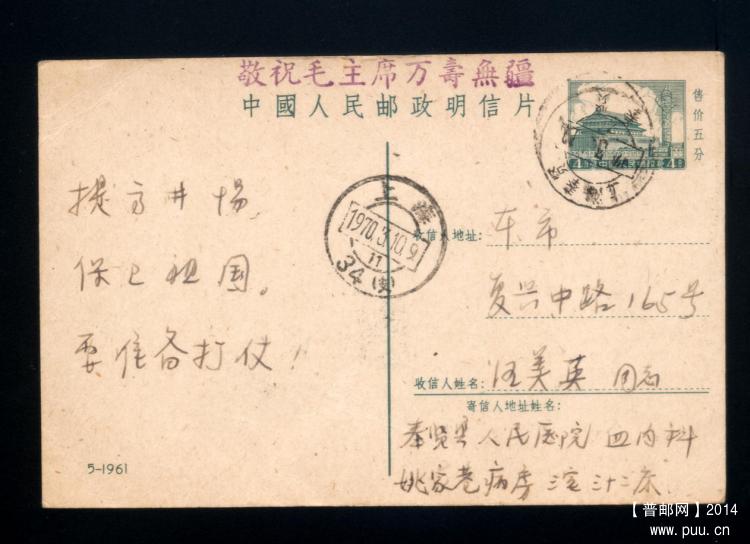 敬祝毛主席万壽無疆
中國人民邮政明信片
售价五分
上海
1970.3.10.9
11
34(支)
提高井惕,
保卫祖国。
要准备打仗!
收信人地址:东市
复兴中路165号
收信人姓名:汪美英 同志
寄信人地址姓名:
奉贤县人民医院 血内科
姚家巷病房 三十二床
5-1961
【普邮网】2014
www.puu.cn